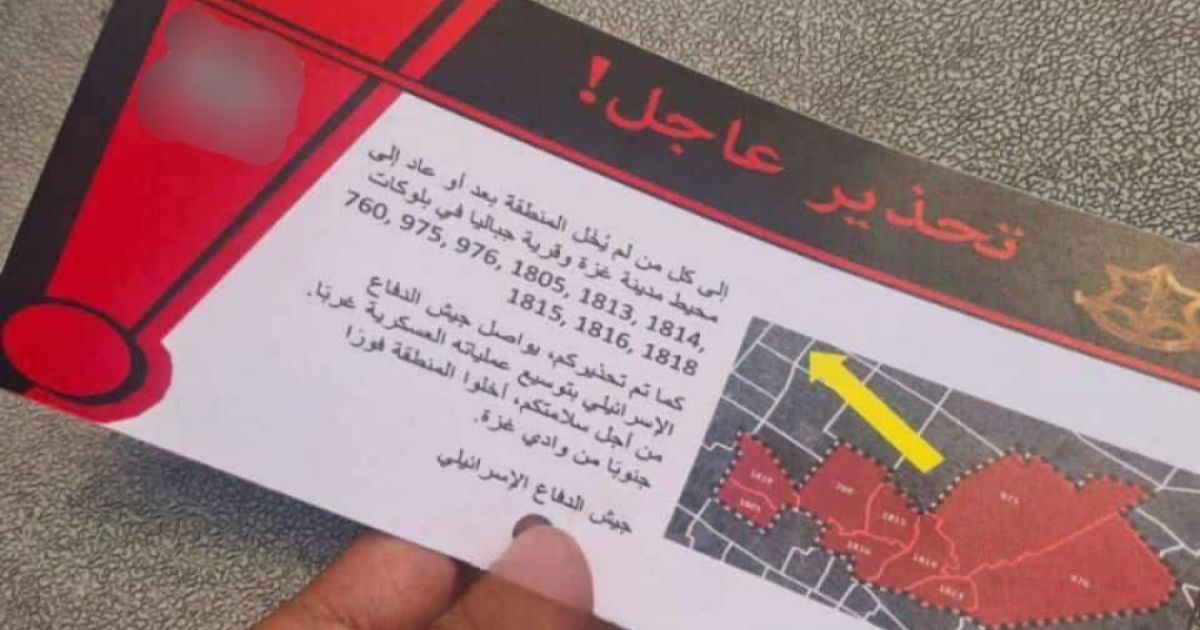 تحذير عاجل!
إلى كل من لم يُخل المنطقة بعد أو عاد إلى
محيط مدينة غزة وقرية جباليا في بلوكات
760, 975, 976, 1805, 1813, 1814,
1815, 1816, 1818
كما تم تحذيركم، يواصل جيش الدفاع
الإسرائيلي بتوسيع عملياته العسكرية غربًا.
من أجل سلامتكم، أخلوا المنطقة فورًا
جنوبًا من وادي غزة.
جيش الدفاع الإسرائيلي
1805
760
1815
975
1814
1813
976